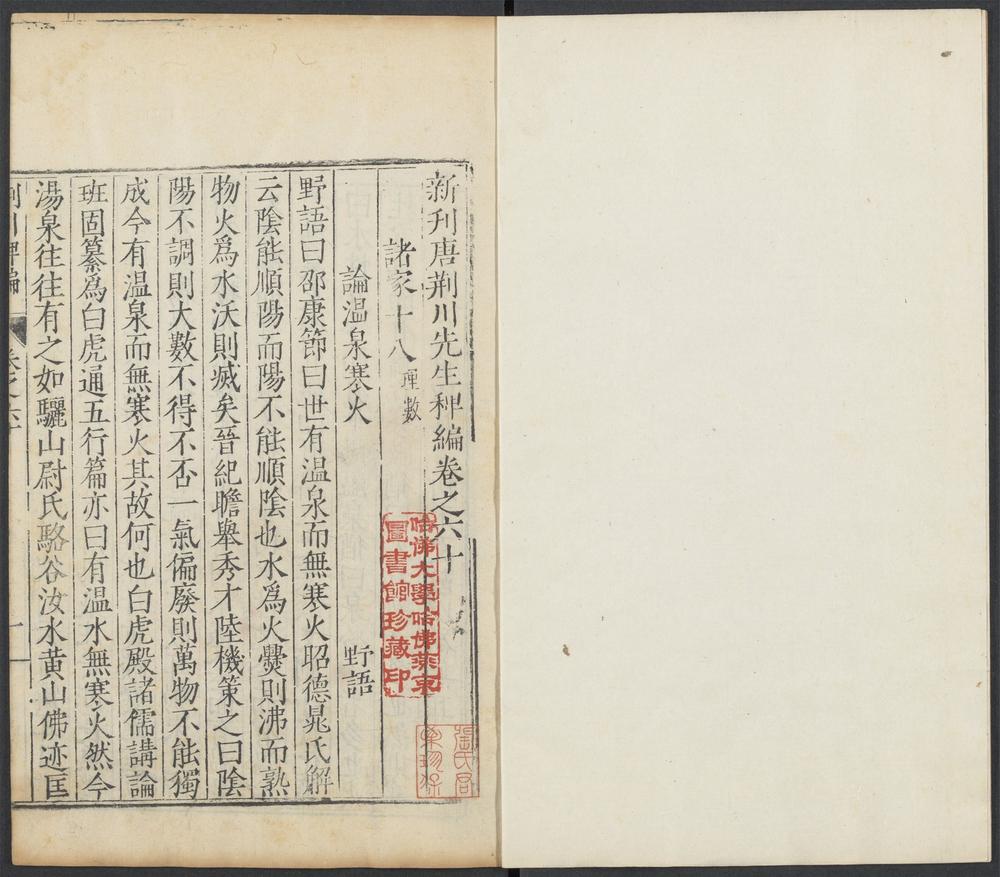 新刋唐荆川先生稗編卷之六十
諸家十八 曆數
論温泉寒火 野語
野語曰邵康節曰世有温泉而無寒火昭德晁氏解
云陰能順陽而陽不能順陰也水為火爨則沸而熟
物火爲水沃則滅矣晉紀瞻舉秀才陸機策之曰陰
陽不調則大數不得不否一氣偏廢則萬物不能獨
成今有温泉而無寒火其故何也白虎殿諸儒講論
班固纂爲白虎通五行篇亦曰有温水無寒火然今
湯泉往往有之如驪山尉氏駱谷汝水黄山佛迹匡
荆川稗編 卷之六十 一
哈佛大學哈佛燕京
圖書館珍藏印